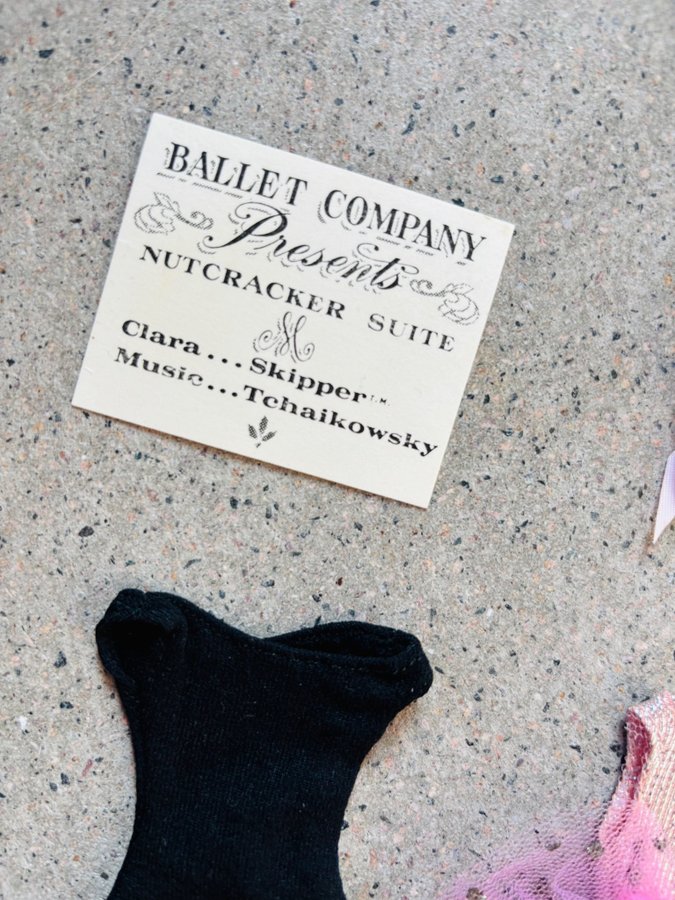 BALLET COMPANY
Presents
NUTCRACKER SUITE
Clara...Skipper T.M.
Music...Tchaikowsky